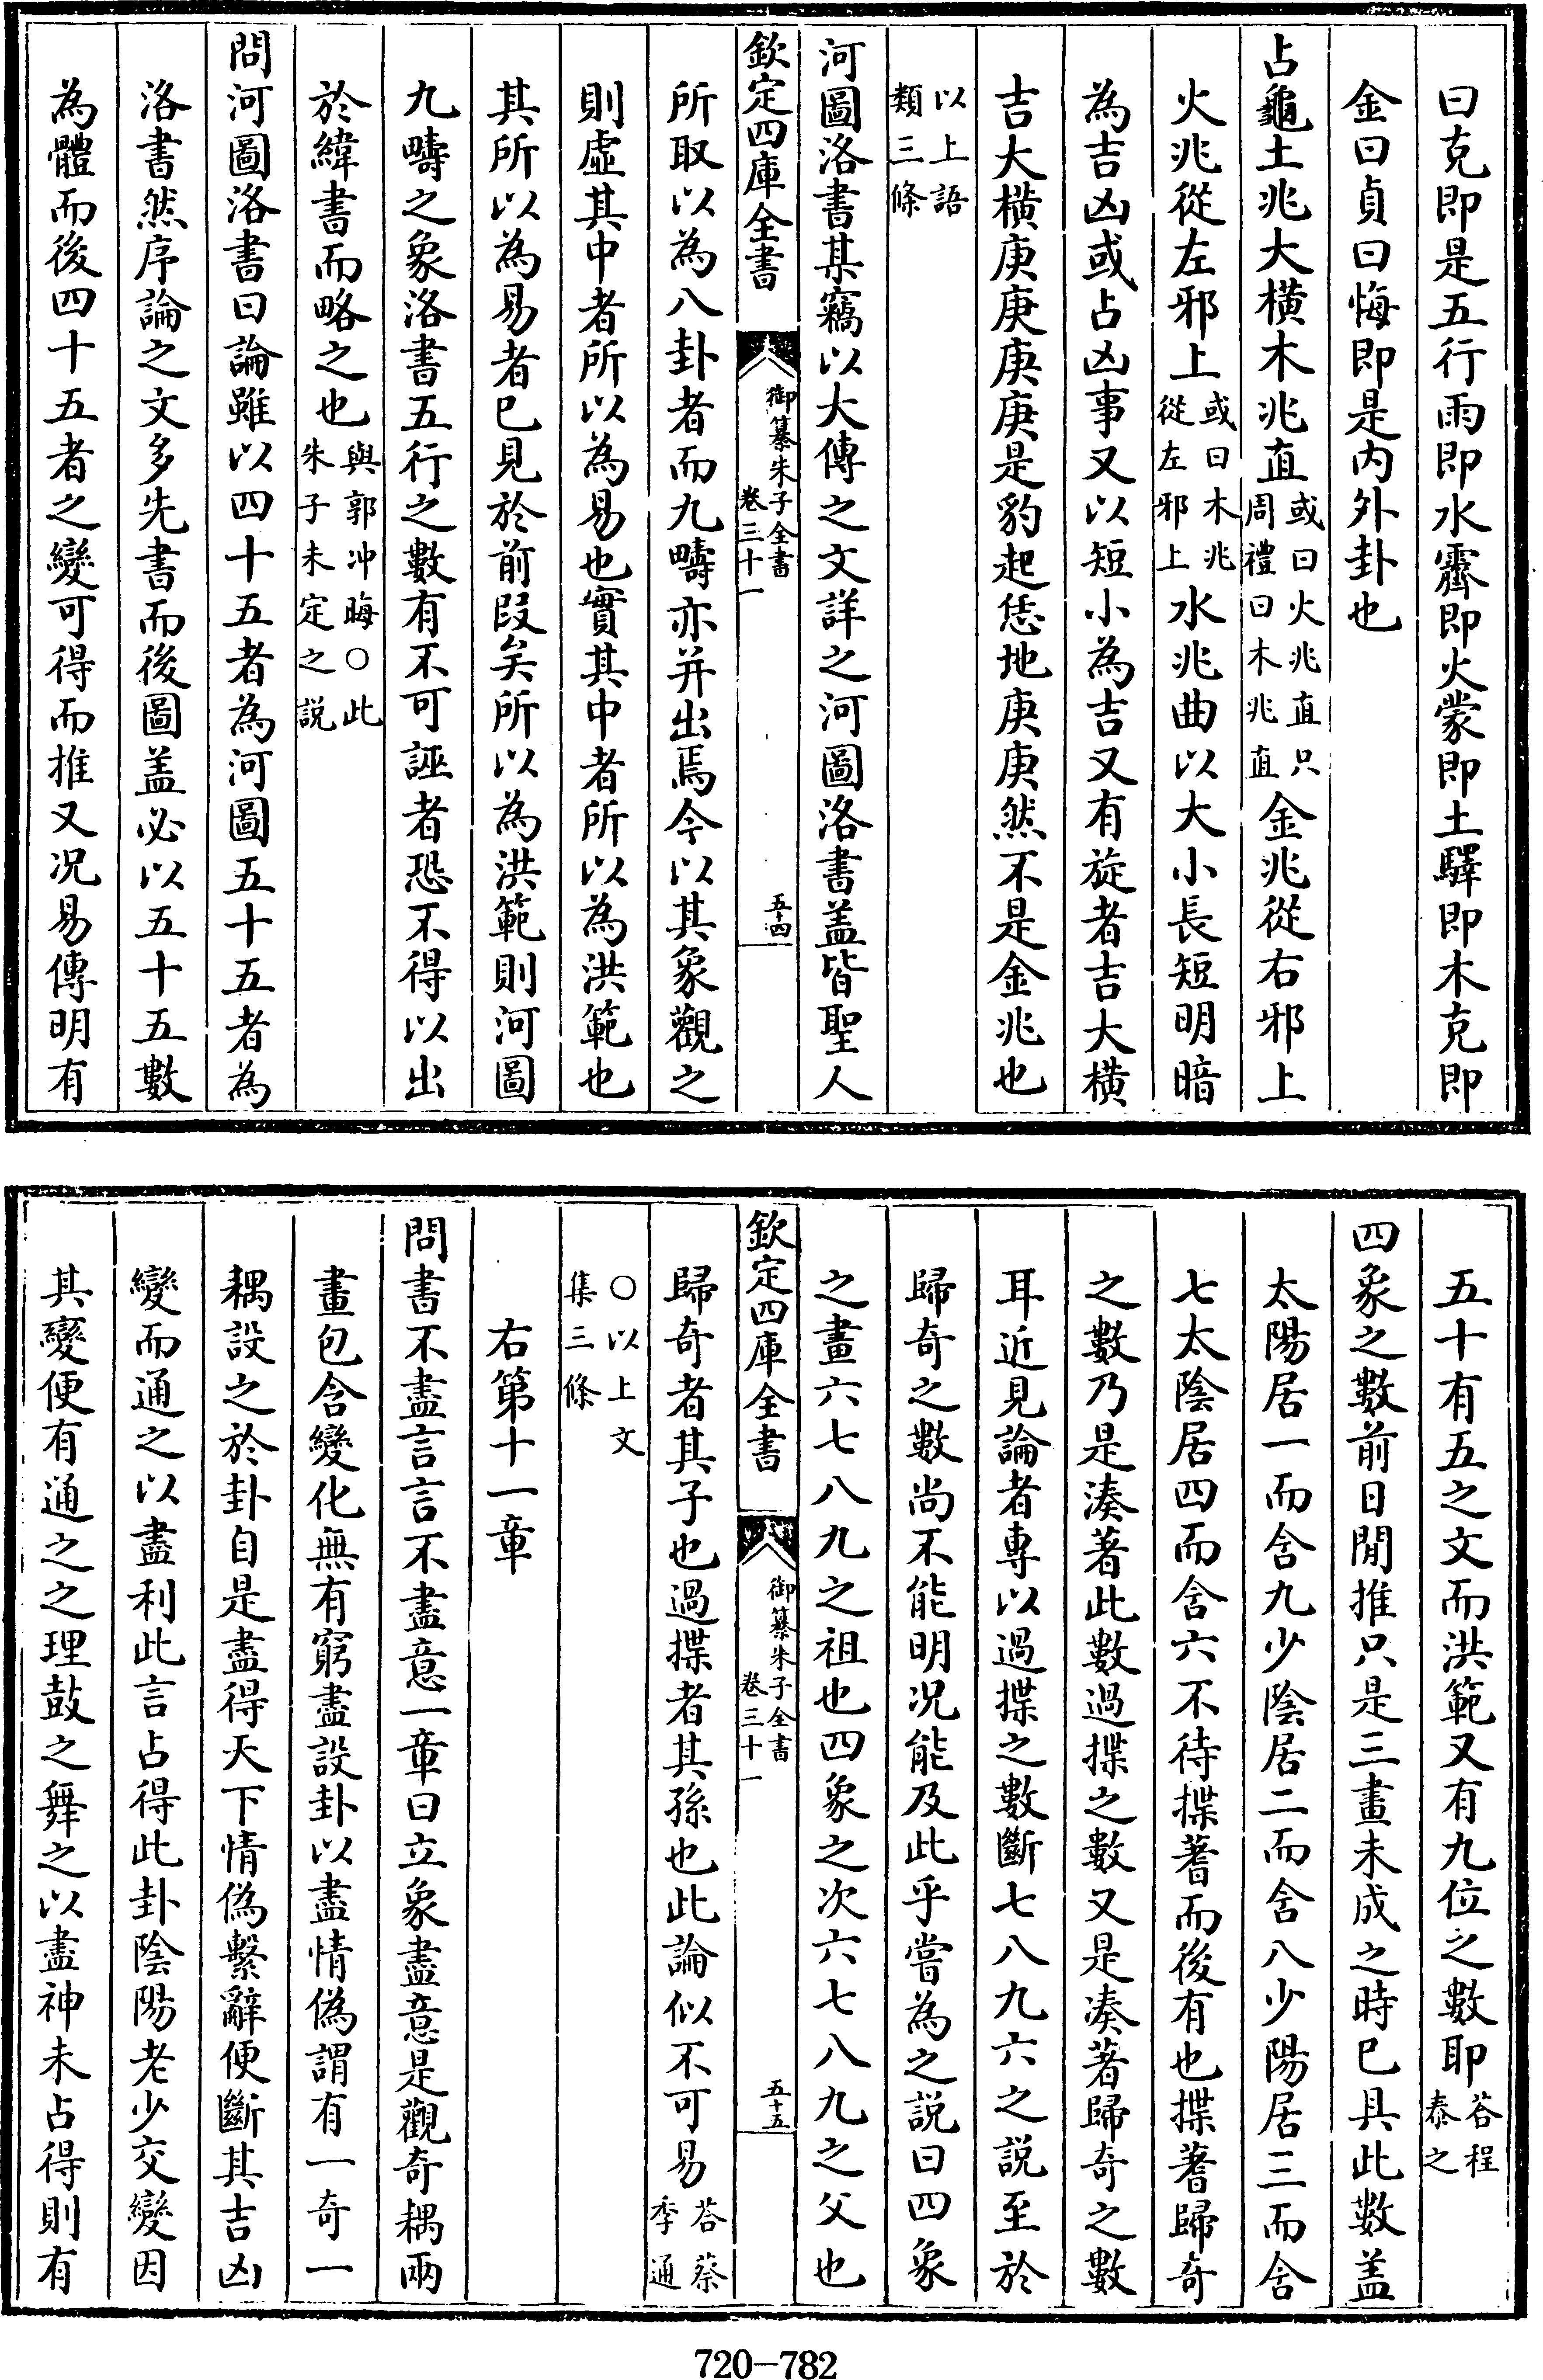 曰克即是五行雨即水霽即火蒙即土驛即木克即
金曰貞曰悔即是内外卦也
占龜土兆大横木兆直或曰火兆直只周禮曰木兆直金兆從右邪上
火兆從左邪上或曰木兆從左邪上水兆曲以大小長短明暗
為吉凶或占凶事又以短小為吉又有旋者吉大横
吉大横庚庚庚庚是豹起恁地庚庚然不是金兆也
以上語類三條
河圖洛書某竊以大傳之文詳之河圖洛書盖皆聖人
欽定四庫全書 御纂朱子全書 卷三十一 五十四
所取以為八卦者而九疇亦并出焉今以其象觀之
則虚其中者所以為易也實其中者所以為洪範也
其所以為易者已見於前段矣所以為洪範則河圖
九疇之象洛書五行之數有不可誣者恐不得以出
於緯書而略之也與郭冲晦○此朱子未定之説
問河圖洛書曰論雖以四十五者為河圖五十五者為
洛書然序論之文多先書而後圖盖必以五十五數
為體而後四十五者之變可得而推又况易傳明有
五十有五之文而洪範又有九位之數耶荅程泰之
四象之數前日閒推只是三畫未成之時已具此數盖
太陽居一而含九少陰居二而含八少陽居三而含
七太陰居四而含六不待揲蓍而後有也揲蓍歸奇
之數乃是湊著此數過揲之數又是湊著歸奇之數
耳近見論者專以過揲之數斷七八九六之説至於
歸奇之數尚不能明况能及此乎嘗為之説曰四象
之畫六七八九之祖也四象之次六七八九之父也
欽定四庫全書 御纂朱子全書 卷三十一 五十五
歸奇者其子也過揲者其孫也此論似不可易荅蔡季通
○以上文集三條
右第十一章
問書不盡言言不盡意一章曰立象盡意是觀奇耦兩
畫包含變化無有窮盡設卦以盡情偽謂有一奇一
耦設之於卦自是盡得天下情偽繫辭便斷其吉凶
變而通之以盡利此言占得此卦陰陽老少交變因
其變便有通之之理鼓之舞之以盡神未占得則有
720-782